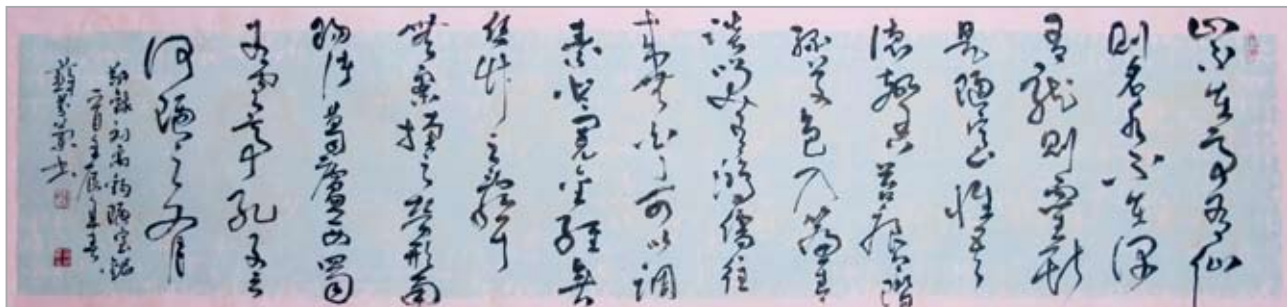 山不在高有仙
則名水不在深
有龍則靈斯
是陋室惟吾
德馨苔痕上階
綠草色入簾青
談笑有鴻儒往
來無白丁可以調
素琴閱金經無
絲竹之亂耳
無案牘之勞形南
陽諸葛廬西蜀
子雲亭孔子云
何陋之有
敬錄劉禹錫陋室銘
壬辰